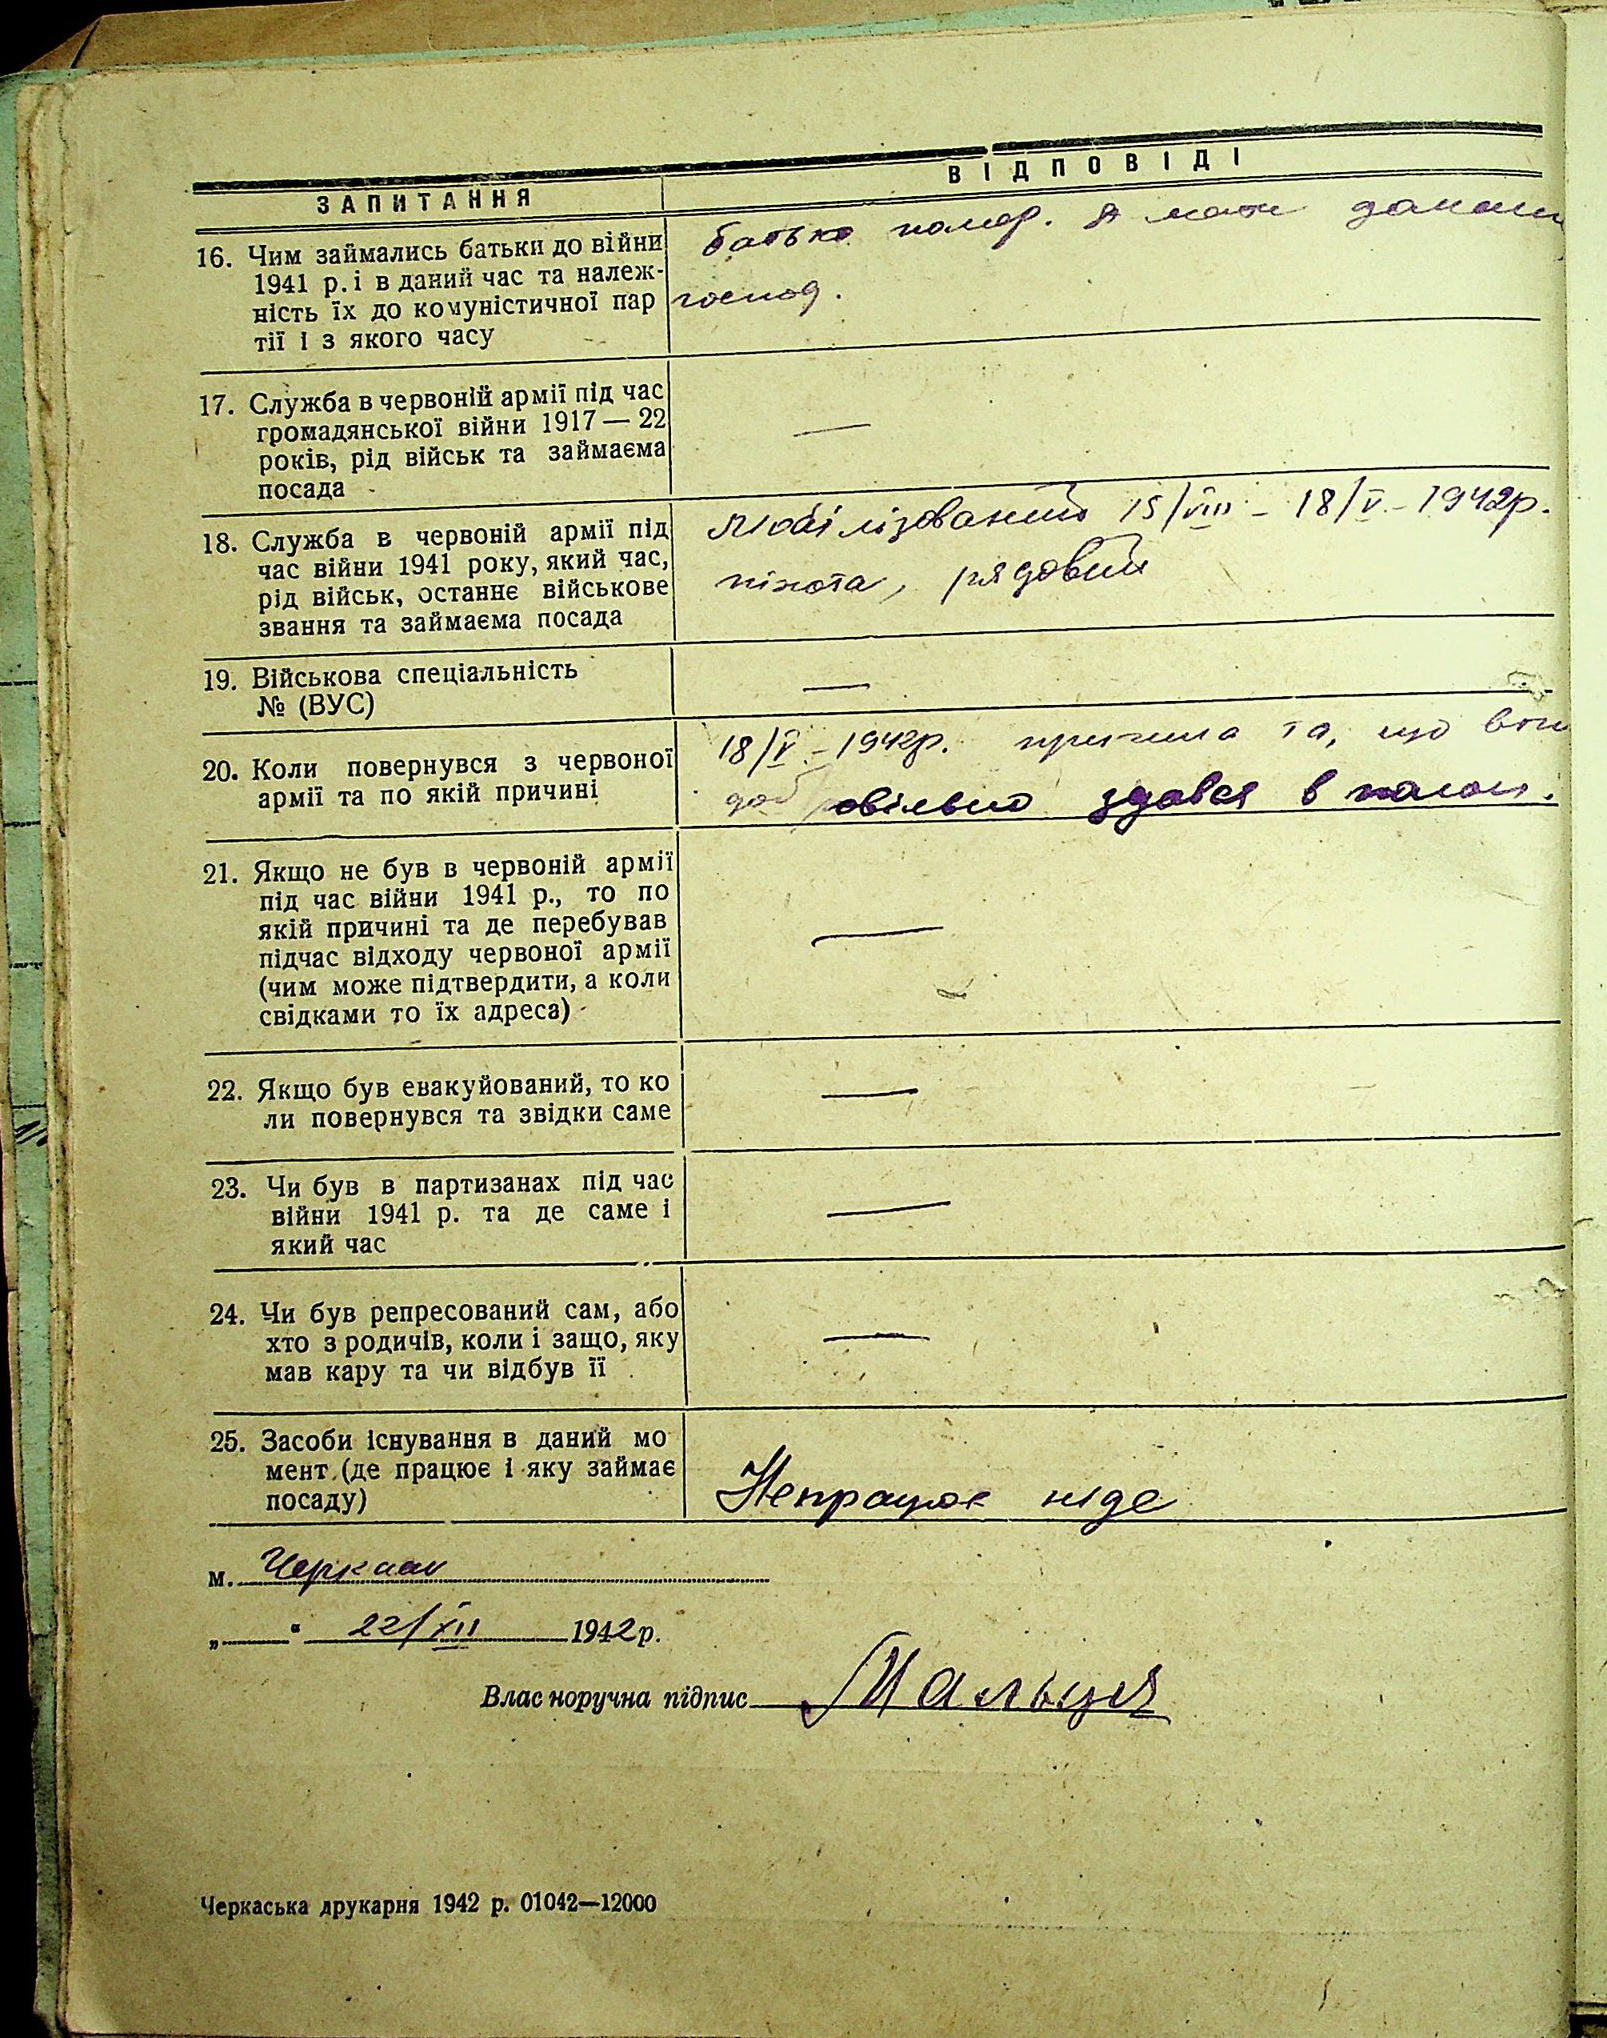 ЗАПИТАННЯ
ВІДПОВІДІ
16. Чим займались батьки до війни
1941 р. і в даний час та належ-
ність їх до комуністичної пар
тії і з якого часу
батько помер. А мати домаш
господ.
17. Служба в червоній армії під час
громадянської війни 1917—22
років, рід військ та займаєма
посада
—
18. Служба в червоній армії під
час війни 1941 року, який час,
рід військ, останнє військове
звання та займаєма посада
Мобілізований 15/VIII – 18/V – 1942р.
піхота, рядовий
19. Військова спеціальність
№ (ВУС)
—
20. Коли повернувся з червоної
армії та по якій причині
18/V – 1942р. причина та, що він
добровільно здався в полон.
21. Якщо не був в червоній армії
під час війни 1941 р., то по
якій причині та де перебував
підчас відходу червоної армії
(чим може підтвердити, а коли
свідками то їх адреса)
—
22. Якщо був евакуйований, то ко
ли повернувся та звідки саме
—
23. Чи був в партизанах під час
війни 1941 р. та де саме і
який час
—
24. Чи був репресований сам, або
хто з родичів, коли і защо, яку
мав кару та чи відбув її
—
25. Засоби існування в даний мо
мент (де працює і яку займає
посаду)
Непрацює ніде
м. Черкаси
„ “ 22/XII 1942 р.
Власноручна підпис Мальця
Черкаська друкарня 1942 р. 01042—12000